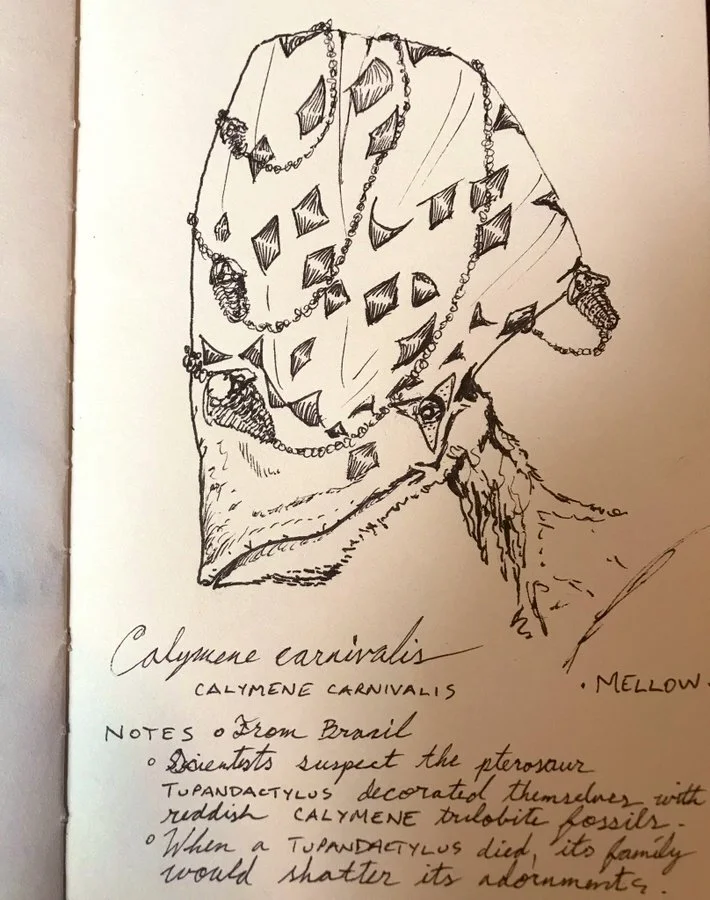 Calymene carnivalis
CALYMENE CARNIVALIS
· MELLOW ·
NOTES o From Brazil
o Scientists suspect the pterosaur
TUPANDACTYLUS decorated themselves with
reddish CALYMENE trilobite fossils.
o When a TUPANDACTYLUS died, its family
would shatter its adornments.